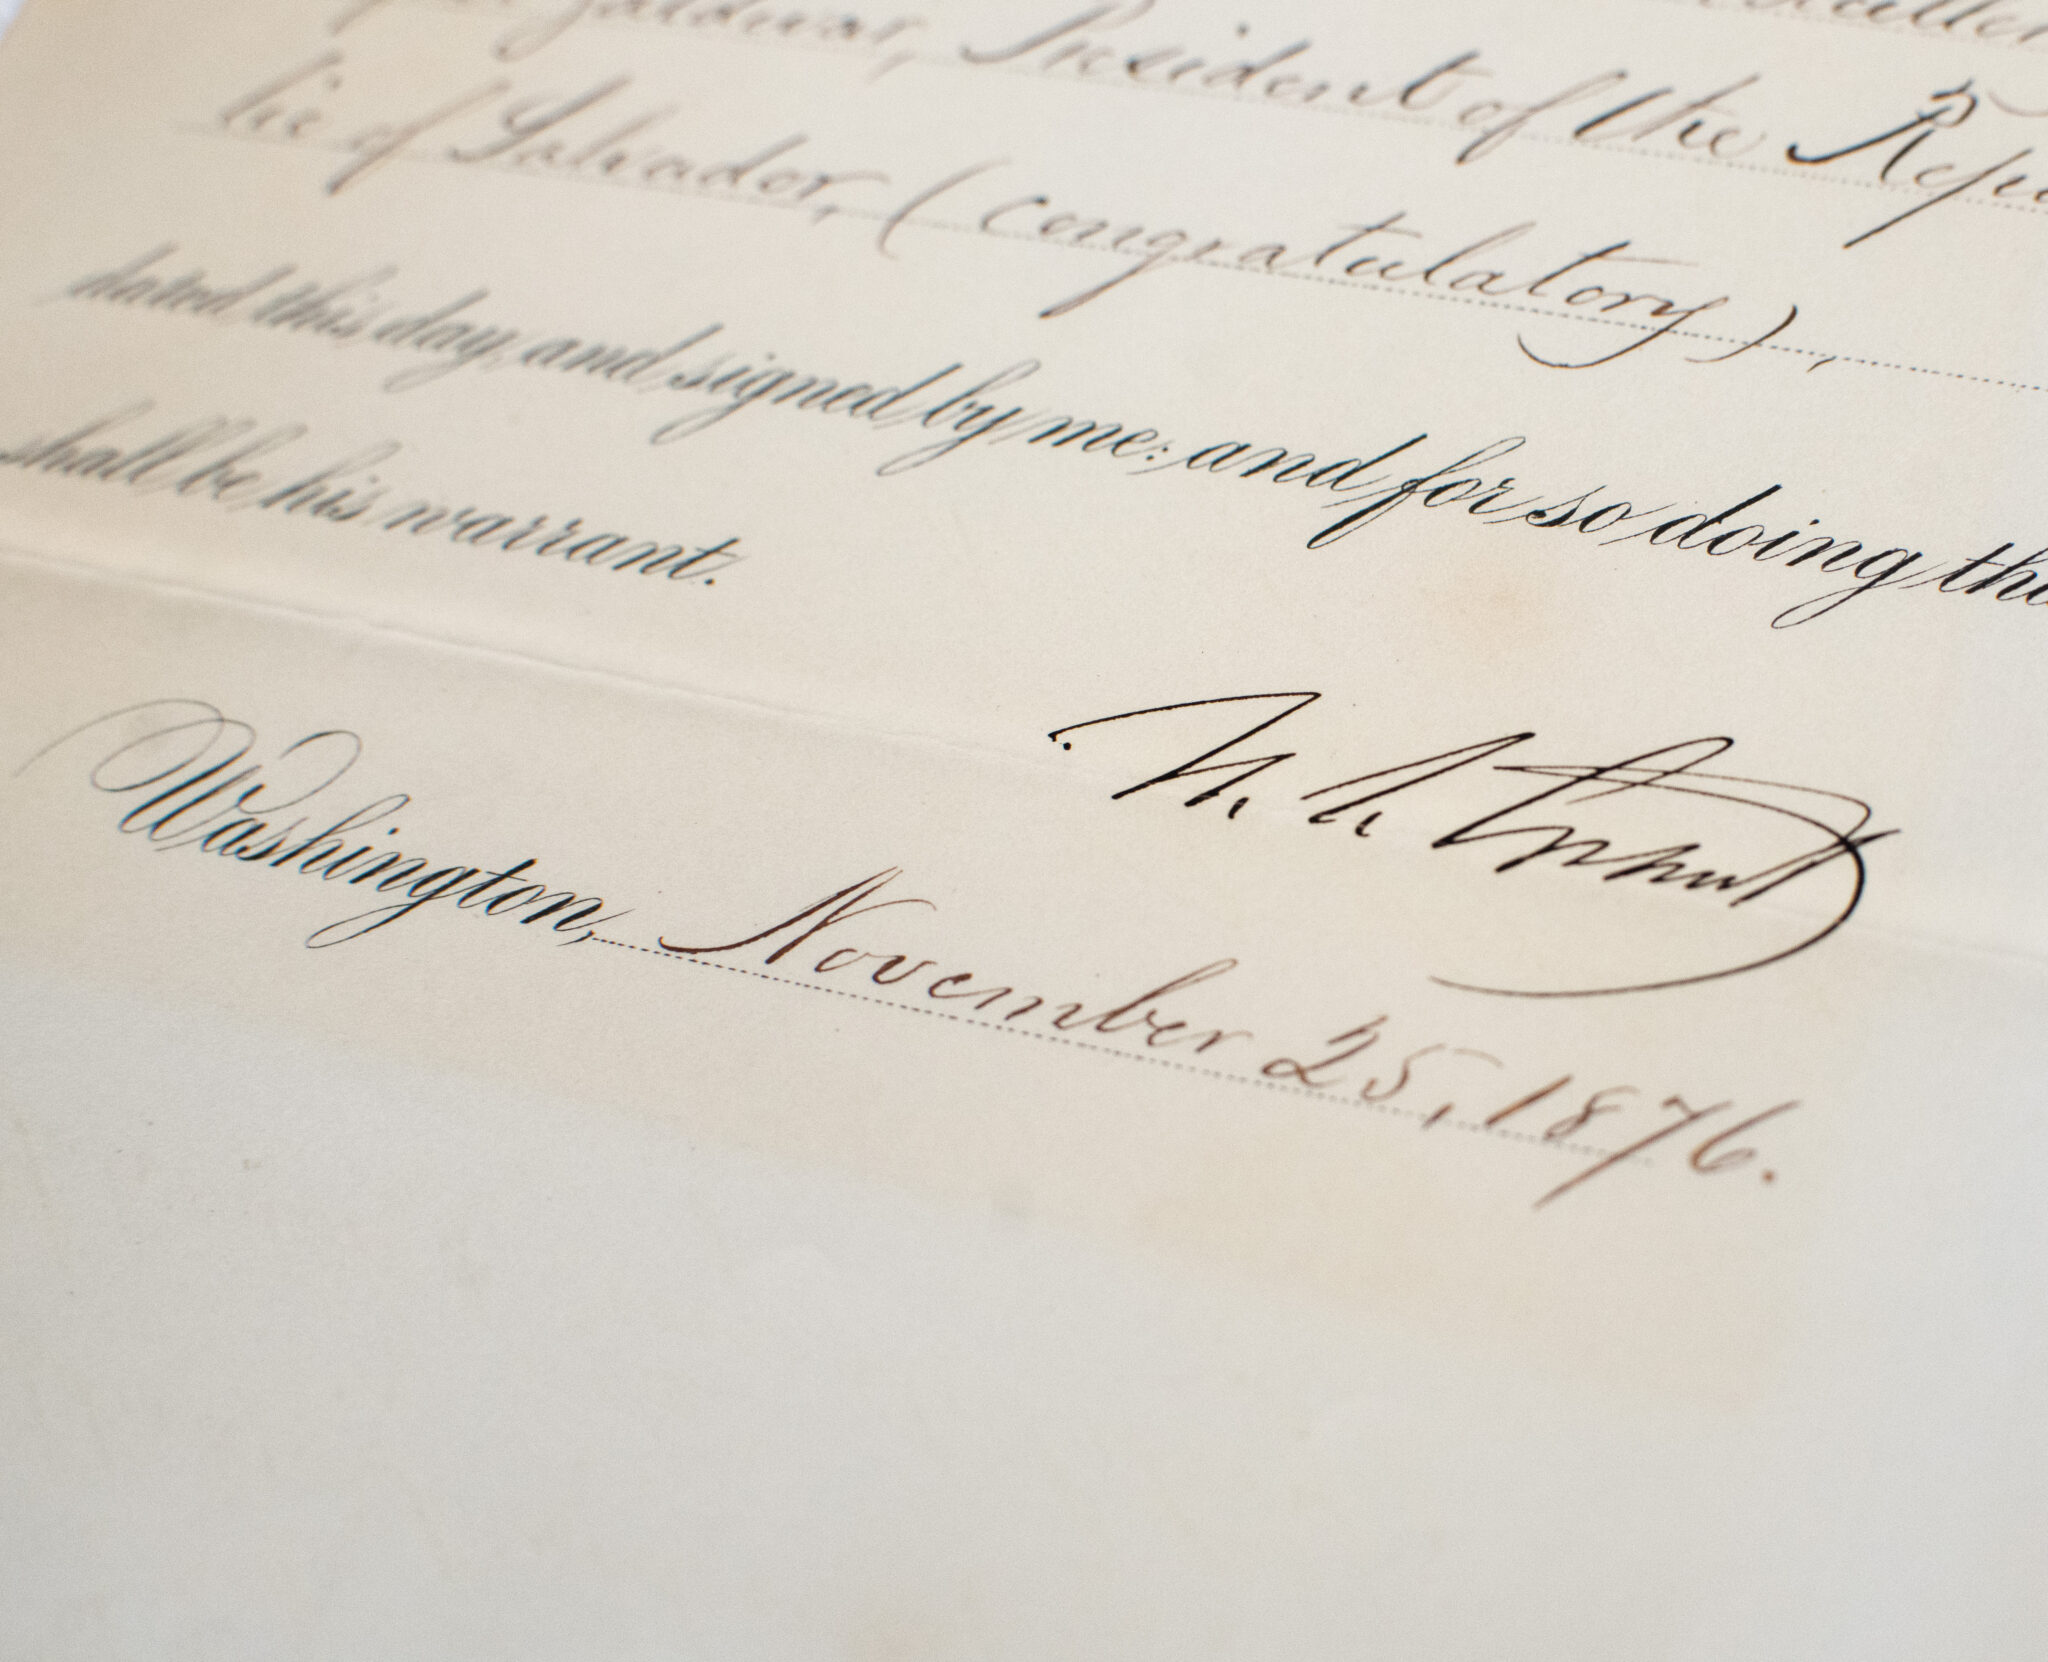 Zaldivar, President of the Repu
lic of Salvador, (congratulatory),
dated this day, and signed by me: and for so doing this
shall be his warrant.
U. S. Grant
Washington, November 25, 1876.